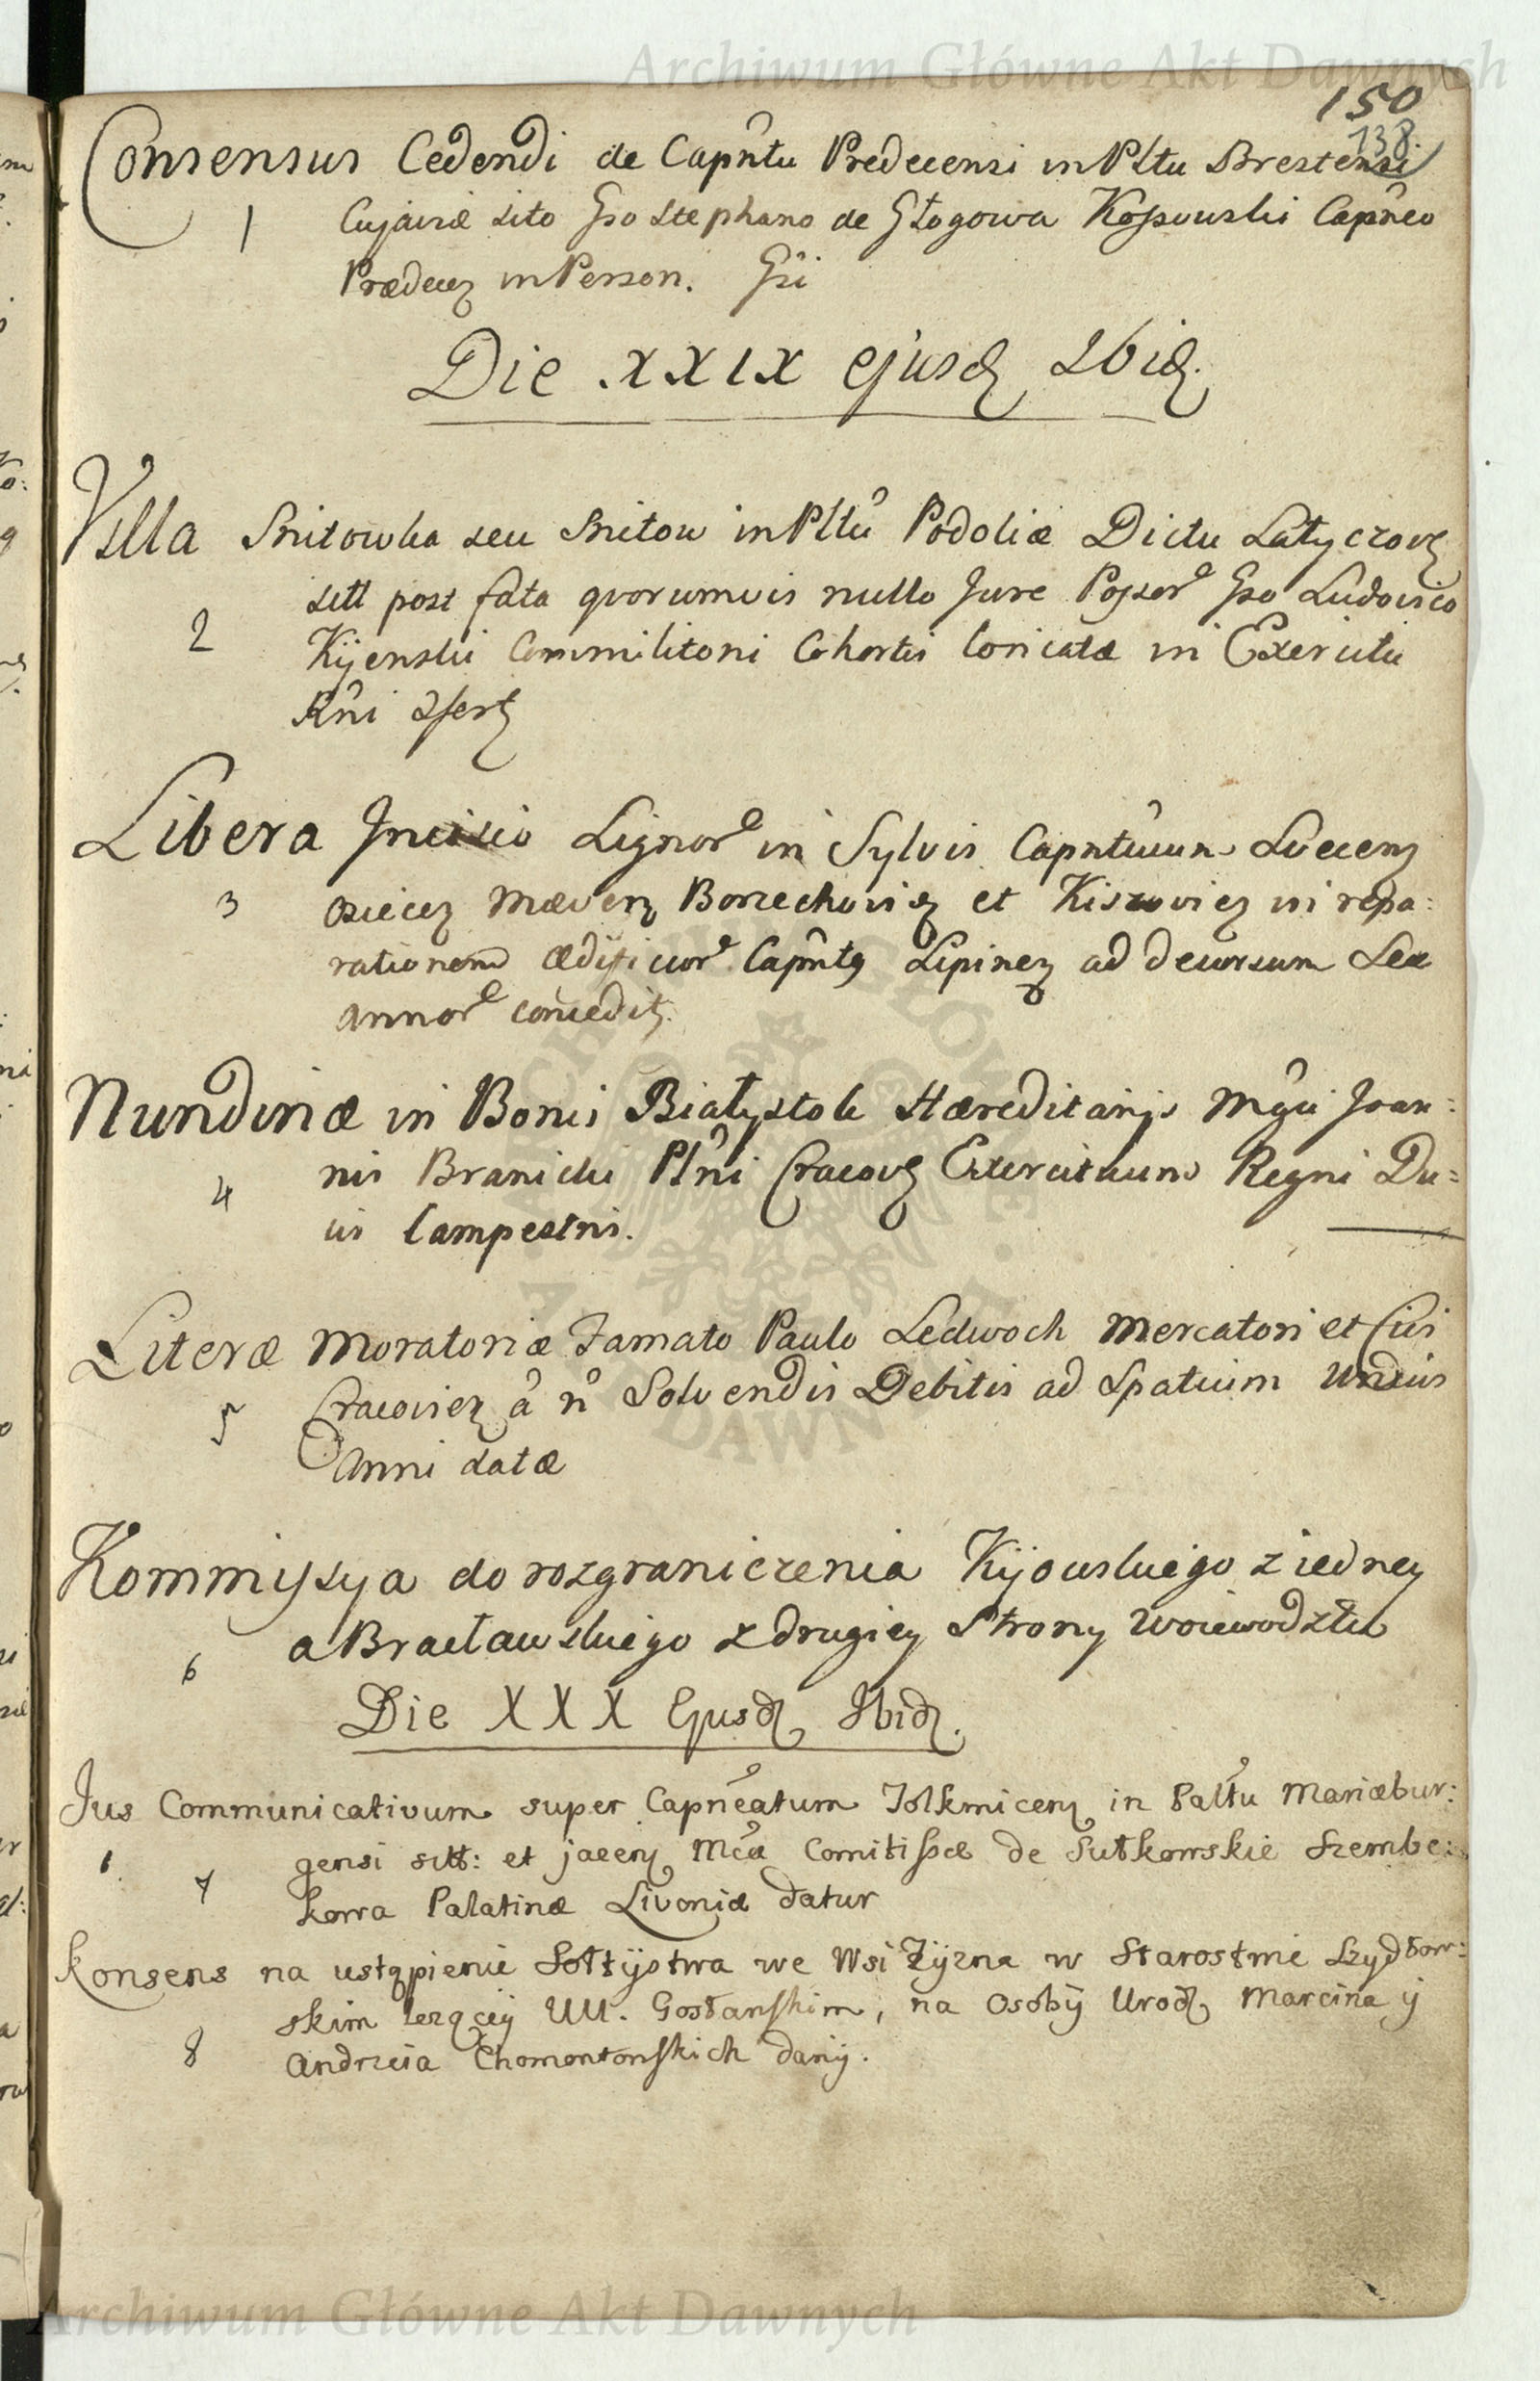 Archiwum Główne Akt Dawnych
150
138.
Consensus Cedendi de Capntu Predecensi in Pltu Brestensi
1 Cujaviæ sito Gso Stephano de Głogowa Kossowski Capneo
Prædecen in Person. Gsi
Die XXIX ejusd Ibid.
Villa Snitowka seu Snitow in Pltu Podoliæ Dictu Latyczov
sitt post fata quorumvis nullo Jure Possor Gso Ludovico
2 Kijenski Commilitoni Cohortis Loricatæ in Exercitu
Rni
Libera Incisio Lignor in Sylvis Capntuum
3 Osiecen Mæven Borzechovien et Kiszovien in repa:
rationem ædificior Capntg Lipinen ad decursum Sex
annor concedit.
Nundinæ in Bonis Białystok Hæreditarijs Mgci Joan:
4 nis Branicki Plni Cracov Exercituum Regni Du=
cis Campestris.
Literæ Moratoriæ Famato Paulo Ledwoch Mercatori et Civi
5 Cracovien â n Solvendis Debitis ad Spatium Unius
Anni datæ
Kommissya do rozgraniczenia Kijowskiego z iedney
6 a Bracławskiego z drugiey Strony Woiewodztw
Die XXX Ejusd Ibid.
Jus Communicativum super Capneatum Tolkmicen in Paltu Mariæbur:
7 gensi sitt: et jacen Mcæ Comitissæ de Sułkowskie Szembe:
kowa Palatinæ Livoniæ datur
Konsens na ustąpienie Sołtÿstwa we Wsi Żÿzna w Starostwie Szydłow:
skim leząceÿ UU. Gostanskim, na Osobÿ Urod. Marcina ÿ
8 Andrzeia Chomontowskich danÿ.
Archiwum Główne Akt Dawnych